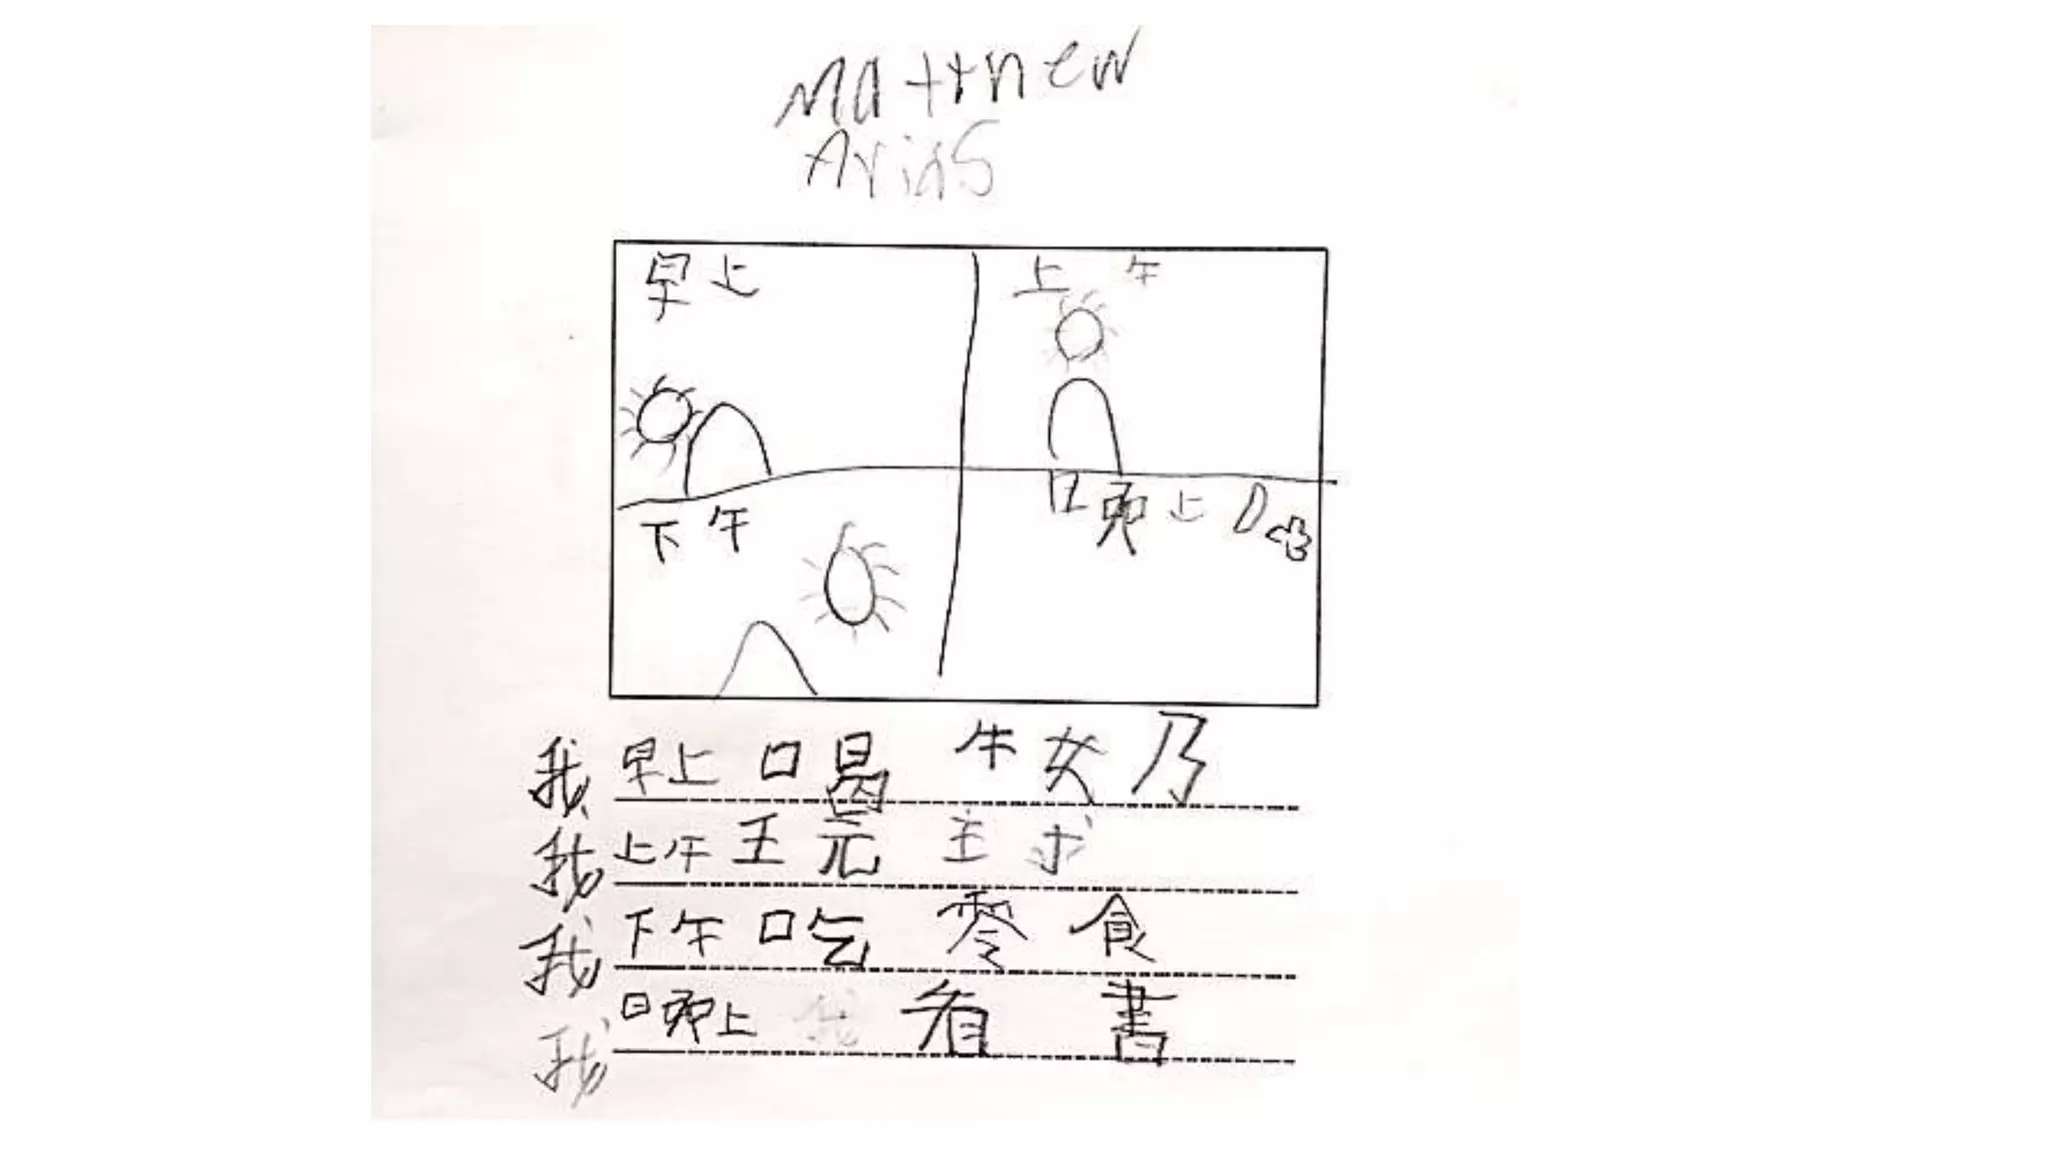 Matthew
Arias
早上
上午
下午
晚上
我早上喝牛奶
我上午玩主求
我下午吃零食
我晚上看書